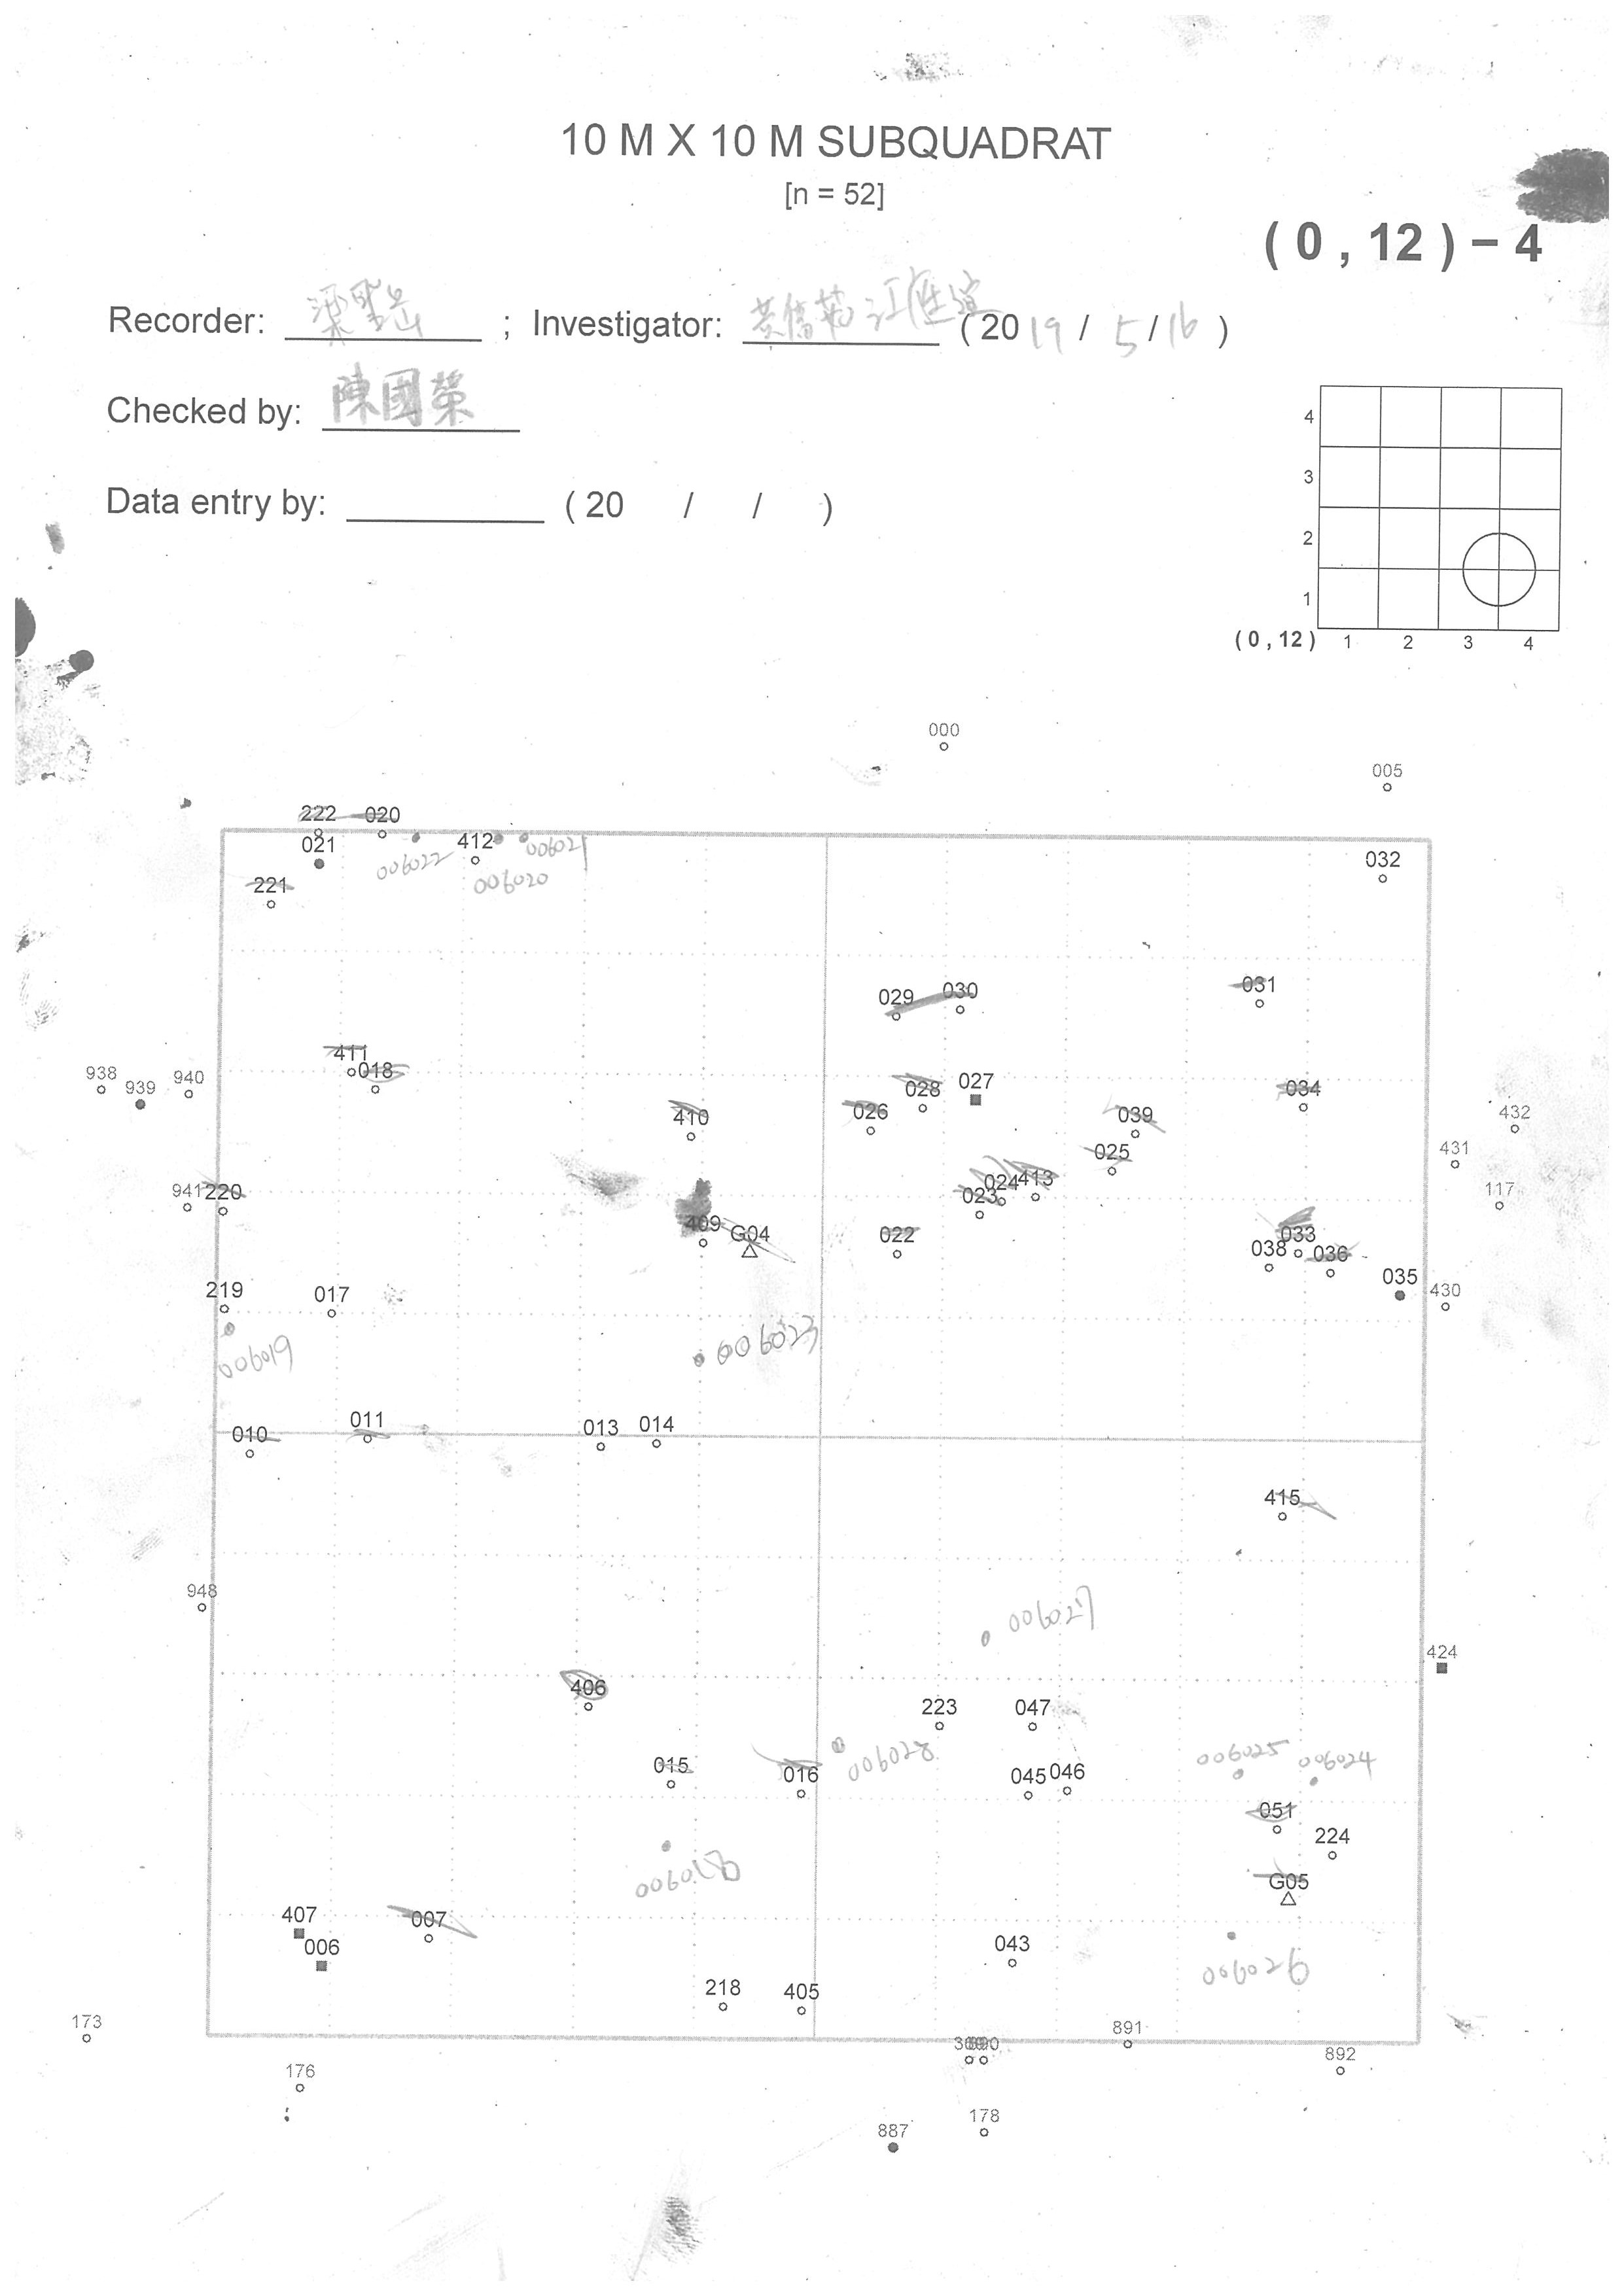 10 M X 10 M SUBQUADRAT
[n = 52]
( 0 , 12 ) – 4
Recorder: ; Investigator: (20 19 / 5 / 16 )
Checked by: 陳國榮
Data entry by: ( 20 / / )
4
3
2
1
( 0 , 12 ) 1 2 3 4
000
005
222 020
021 412 006021
006022 006020
032
221
029 030 031
411 018
938 939 940
028 027 034
410 026 039 432
025 431
941 220 024 413 117
023
409 G04 022 033
038 036
219 017 035 430
006019 006023
010 011 013 014
415
948
006027
424
406
223 047
006028 006025 006024
015 016 045 046
051
224
006018
G05
407 007
006 043
006026
218 405
173 891
890 892
176
178
887